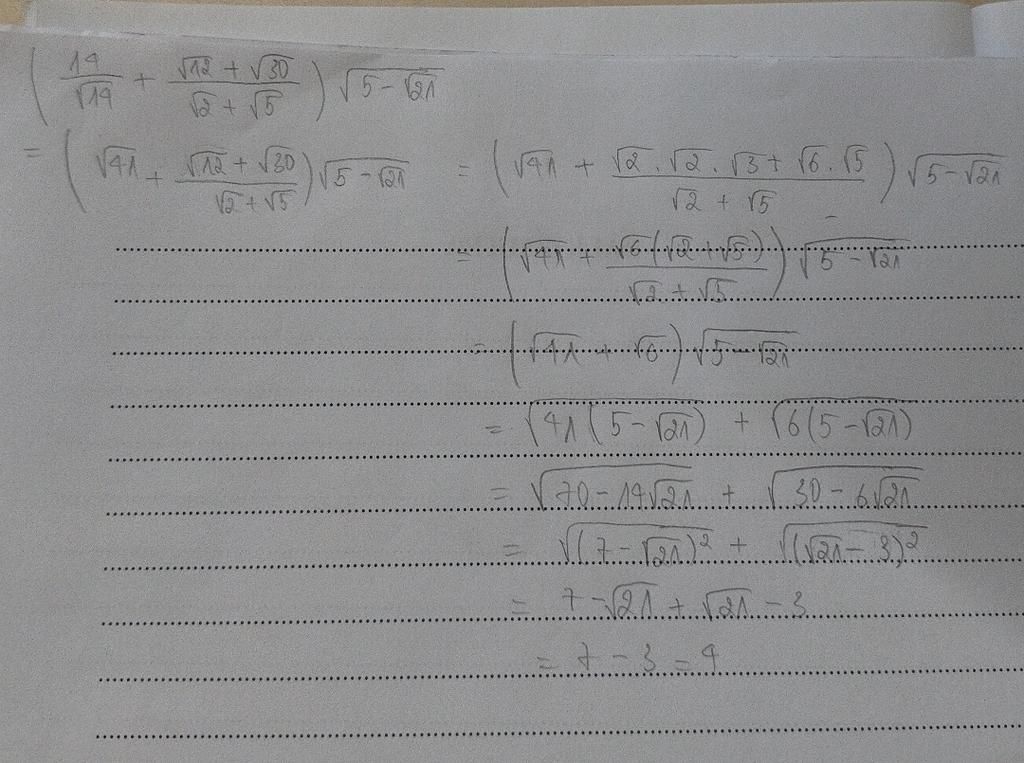 (14/√14 + (√12 + √30)/(√2 + √5)) √(5 - √21)
= (√41 + (√12 + √30)/(√2 + √5)) √(5 - √21) = (√41 + (√2 . √2 . √3 + √6 . √5)/(√2 + √5)) √(5 - √21)
= (√41 + √6(√2 + √5)/(√2 + √5)) √(5 - √21)
= (√41 + √6) √(5 - √21)
= √(41(5 - √21)) + √(6(5 - √21))
= √(70 - 14√21) + √(30 - 6√21)
= √((7 - √21)²) + √((√21 - 3)²)
= 7 - √21 + √21 - 3
= 7 - 3 = 4